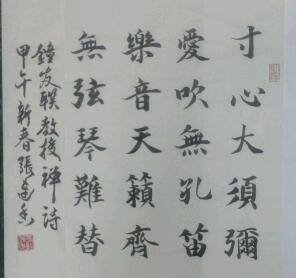 寸心大須彌
愛吹無孔笛
樂音天籟齊
無弦琴難替
鐘友聯教授禪詩
甲午新春張